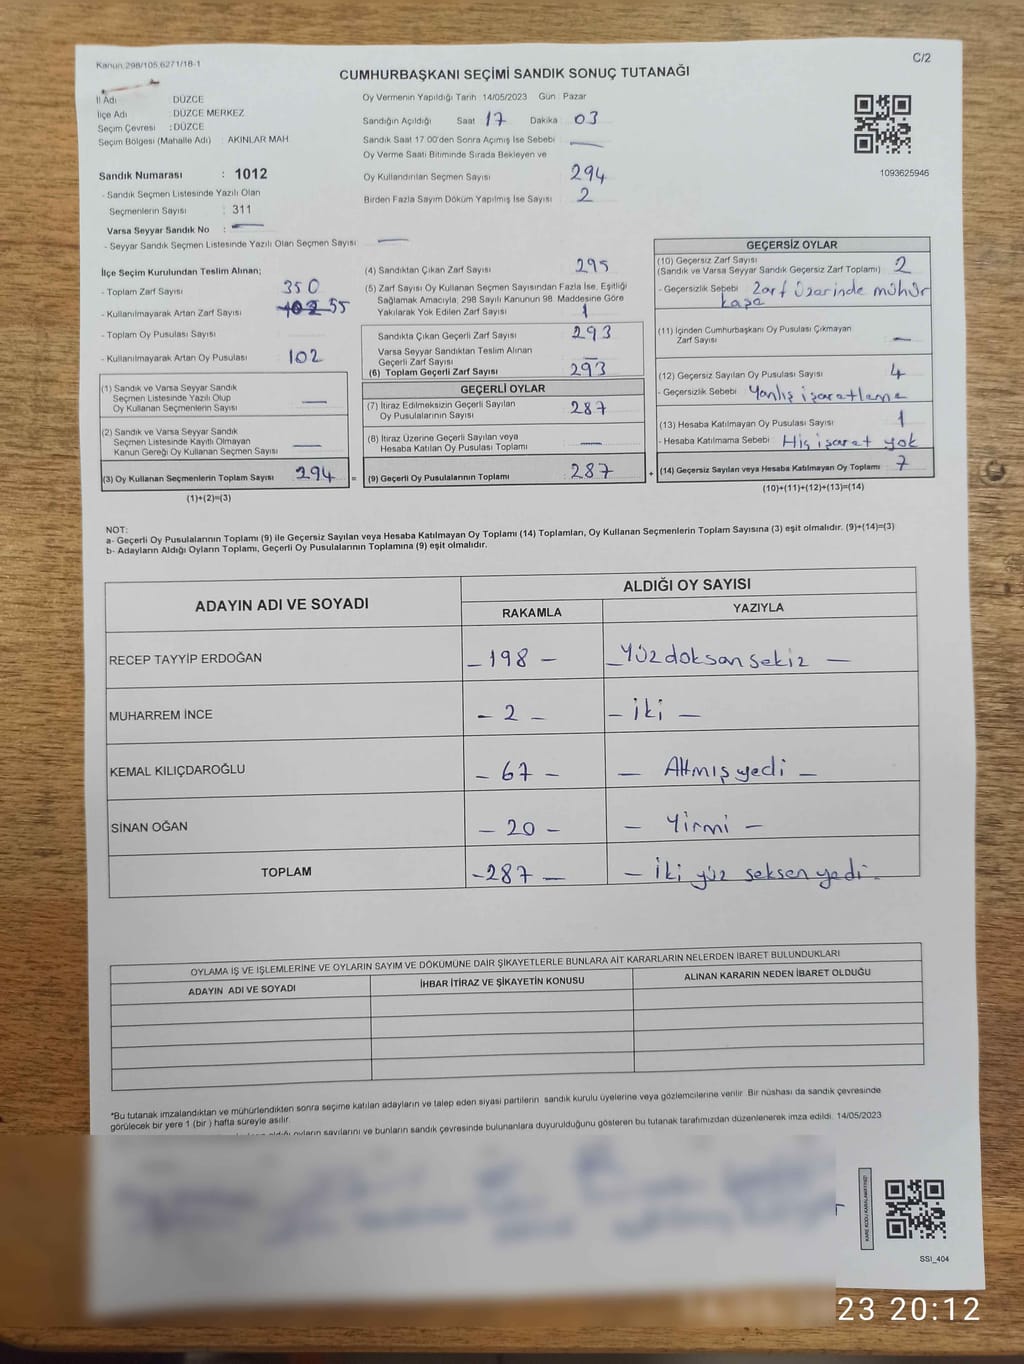 Kanun:298/105,6271/18-1
C/2
CUMHURBAŞKANI SEÇİMİ SANDIK SONUÇ TUTANAĞI
İl Adı DÜZCE
İlçe Adı DÜZCE MERKEZ
Seçim Çevresi : DÜZCE
Seçim Bölgesi (Mahalle Adı) : AKINLAR MAH
Oy Vermenin Yapıldığı Tarih 14/05/2023 Gün : Pazar
Sandığın Açıldığı Saat 17 Dakika 03
Sandık Saat 17 00'den Sonra Açımış İse Sebebi
Oy Verme Saati Bitiminde Sırada Bekleyen ve
Oy Kullandırılan Seçmen Sayısı 294
Birden Fazla Sayım Döküm Yapılmış İse Sayısı 2
1093625946
Sandık Numarası : 1012
- Sandık Seçmen Listesinde Yazılı Olan
Seçmenlerin Sayısı : 311
Varsa Seyyar Sandık No :
- Seyyar Sandık Seçmen Listesinde Yazılı Olan Seçmen Sayısı
İlçe Seçim Kurulundan Teslim Alınan;
- Toplam Zarf Sayısı 350
- Kullanılmayarak Artan Zarf Sayısı 102 55
- Toplam Oy Pusulası Sayısı
- Kullanılmayarak Artan Oy Pusulası 102
(1) Sandık ve Varsa Seyyar Sandık
Seçmen Listesinde Yazılı Olup
Oy Kullanan Seçmenlerin Sayısı
(2) Sandık ve Varsa Seyyar Sandık
Seçmen Listesinde Kayıtlı Olmayan
Kanun Gereği Oy Kullanan Seçmen Sayısı
(3) Oy Kullanan Seçmenlerin Toplam Sayısı 294 =
(1)+(2)=(3)
(4) Sandıktan Çıkan Zarf Sayısı 295
(5) Zarf Sayısı Oy Kullanan Seçmen Sayısından Fazla İse, Eşitliği
Sağlamak Amacıyla, 298 Sayılı Kanunun 98. Maddesine Göre
Yakılarak Yok Edilen Zarf Sayısı 1
Sandıkta Çıkan Geçerli Zarf Sayısı 293
Varsa Seyyar Sandıktan Teslim Alınan
Geçerli Zarf Sayısı
(6) Toplam Geçerli Zarf Sayısı 293
GEÇERLİ OYLAR
(7) İtiraz Edilmeksizin Geçerli Sayılan
Oy Pusulalarının Sayısı 287
(8) İtiraz Üzerine Geçerli Sayılan veya
Hesaba Katılan Oy Pusulası Toplamı
(9) Geçerli Oy Pusulalarının Toplamı 287 +
GEÇERSİZ OYLAR
(10) Geçersiz Zarf Sayısı
(Sandık ve Varsa Seyyar Sandık Geçersiz Zarf Toplamı) 2
- Geçersizlik Sebebi Zarf üzerinde mühür
kaşe
(11) İçinden Cumhurbaşkanı Oy Pusulası Çıkmayan
Zarf Sayısı
(12) Geçersiz Sayılan Oy Pusulası Sayısı 4
- Geçersizlik Sebebi Yanlış işaretleme
(13) Hesaba Katılmayan Oy Pusulası Sayısı 1
- Hesaba Katılmama Sebebi Hiç işaret yok
(14) Geçersiz Sayılan veya Hesaba Katılmayan Oy Toplamı 7
(10)+(11)+(12)+(13)=(14)
NOT:
a- Geçerli Oy Pusulalarının Toplamı (9) ile Geçersiz Sayılan veya Hesaba Katılmayan Oy Toplamı (14) Toplamları, Oy Kullanan Seçmenlerin Toplam Sayısına (3) eşit olmalıdır. (9)+(14)=(3)
b- Adayların Aldığı Oyların Toplamı, Geçerli Oy Pusulalarının Toplamına (9) eşit olmalıdır.
ADAYIN ADI VE SOYADI ALDIĞI OY SAYISI
RAKAMLA YAZIYLA
RECEP TAYYİP ERDOĞAN - 198 - - Yüzdoksansekiz -
MUHARREM İNCE - 2 - - iki -
KEMAL KILIÇDAROĞLU - 67 - - Altmışyedi -
SİNAN OĞAN - 20 - - Yirmi -
TOPLAM - 287 - - İki yüz seksen yedi -
OYLAMA İŞ VE İŞLEMLERİNE VE OYLARIN SAYIM VE DÖKÜMÜNE DAİR ŞİKAYETLERLE BUNLARA AİT KARARLARIN NELERDEN İBARET BULUNDUKLARI
ADAYIN ADI VE SOYADI İHBAR İTİRAZ VE ŞİKAYETİN KONUSU ALINAN KARARIN NEDEN İBARET OLDUĞU
*Bu tutanak imzalandıktan ve mühürlendikten sonra seçime katılan adayların ve talep eden siyasi partilerin sandık kurulu üyelerine veya gözlemcilerine verilir. Bir nüshası da sandık çevresinde
görülecek bir yere 1 (bir) hafta süreyle asılır.
oyların sayılarını ve bunların sandık çevresinde bulunanlara duyurulduğunu gösteren bu tutanak tarafımızdan düzenlenerek imza edildi. 14/05/2023
KARE KODU KARALAMAYINIZ!
SSI_404
23 20:12